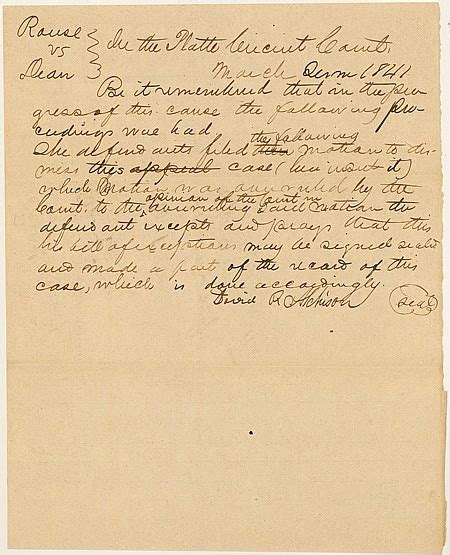 Rouse
vs
Dean
In the Platte Circuit Court
March Term 1841
Be it remembered that in the pro-
gress of this cause the following pro-
ceedings were had
The defendants filed the following motion to dis-
miss this appeal case (here insert it)
which Motion was overruled by the
Court. to the opinion of the Court in overruling said motion the
defendant excepts and prays that this
his bill of exceptions may be signed seald
and made a part of the record of this
case, which is done accordingly.
David R Atchison (seal)